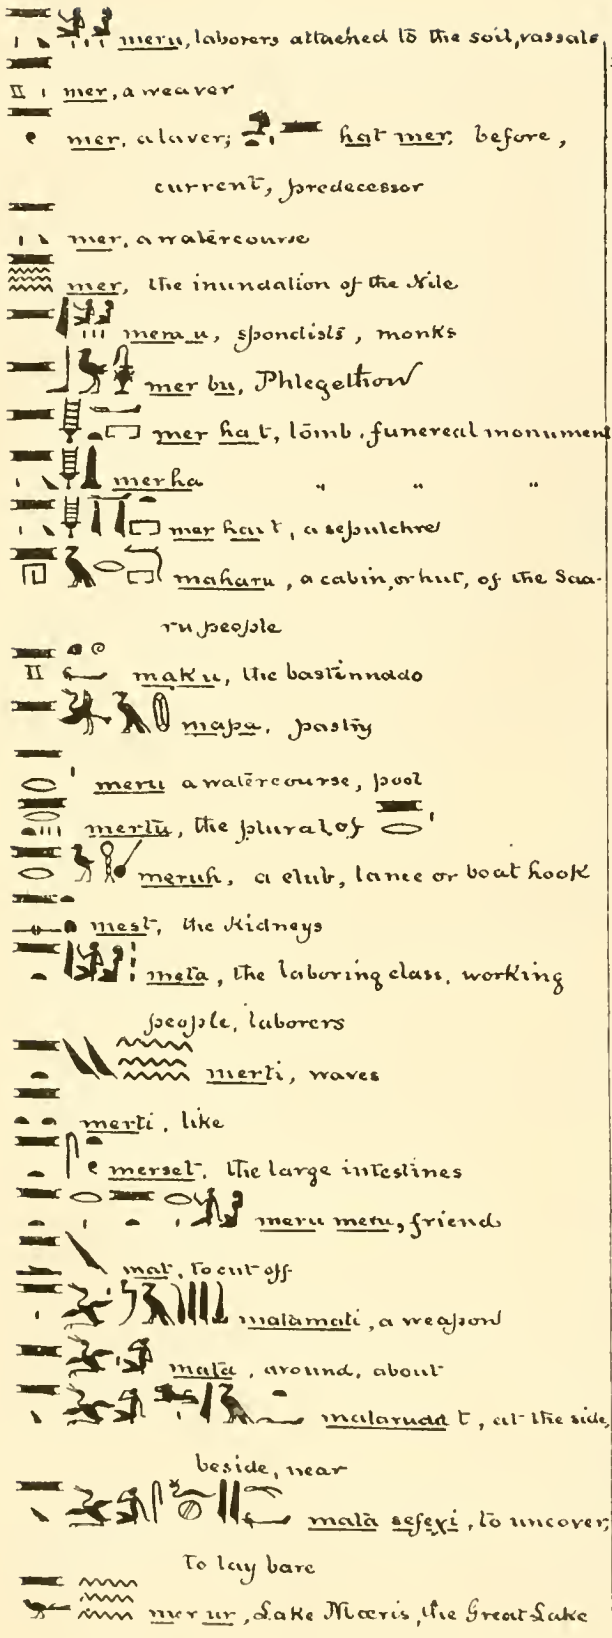 meru, laborers attached to the soil, vassals,
mer, a weaver
mer, a laver; hat mer, before,
current, predecessor
mer, a watercourse
mer, the inundation of the Nile
mera u, spondists, monks
mer bu, Phlegethon
mer ha t, tomb, funereal monument
merha " " "
mer hait, a sepulchre
maharu, a cabin, or hut, of the Saa-
ru people
maku, the bastinnado
mapa, pastry
meru a watercourse, pool
mertu, the plural of
meruh, a club, lance or boat hook
mest, the kidneys
meta, the laboring class, working
people, laborers
merti, waves
merti, like
merset, the large intestines
meru meru, friend
mat, to cut off
matamati, a weapon
mata, around, about
mataruaat t, at the side,
beside, near
mata sefexi, to uncover,
to lay bare
mer ur, Lake Mœris, the Great Lake